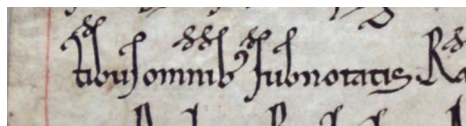 tibus omnib' subnotatis Ra